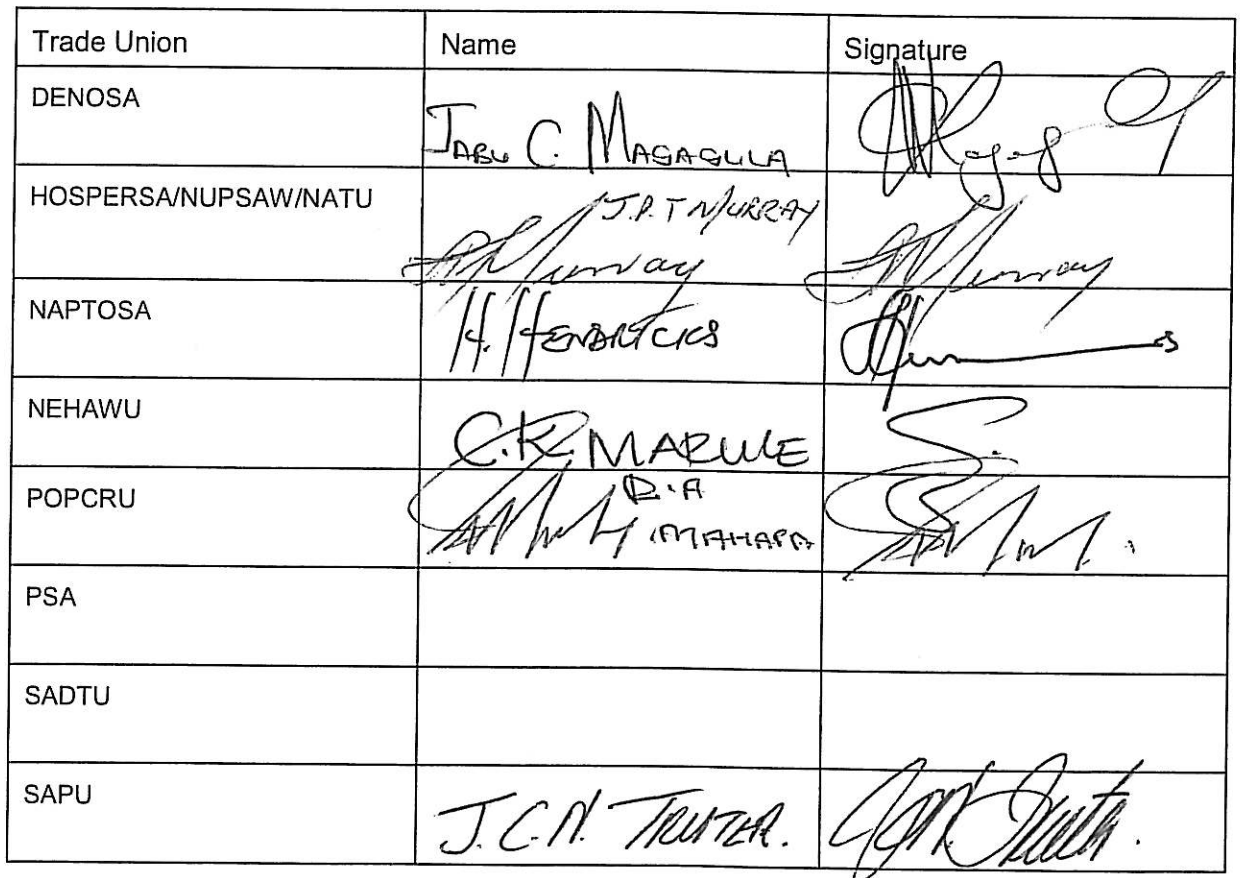 Trade Union Name Signature
DENOSA
JABU C. MAGAGULA
HOSPERSA/NUPSAW/NATU
J.P.T MURRAY
Murray Murray
NAPTOSA
H. HENDRICKS
NEHAWU
C.K. MARULE
POPCRU
R.A
MAHAPA
PSA
SADTU
SAPU
J.C.N. TRUTER.